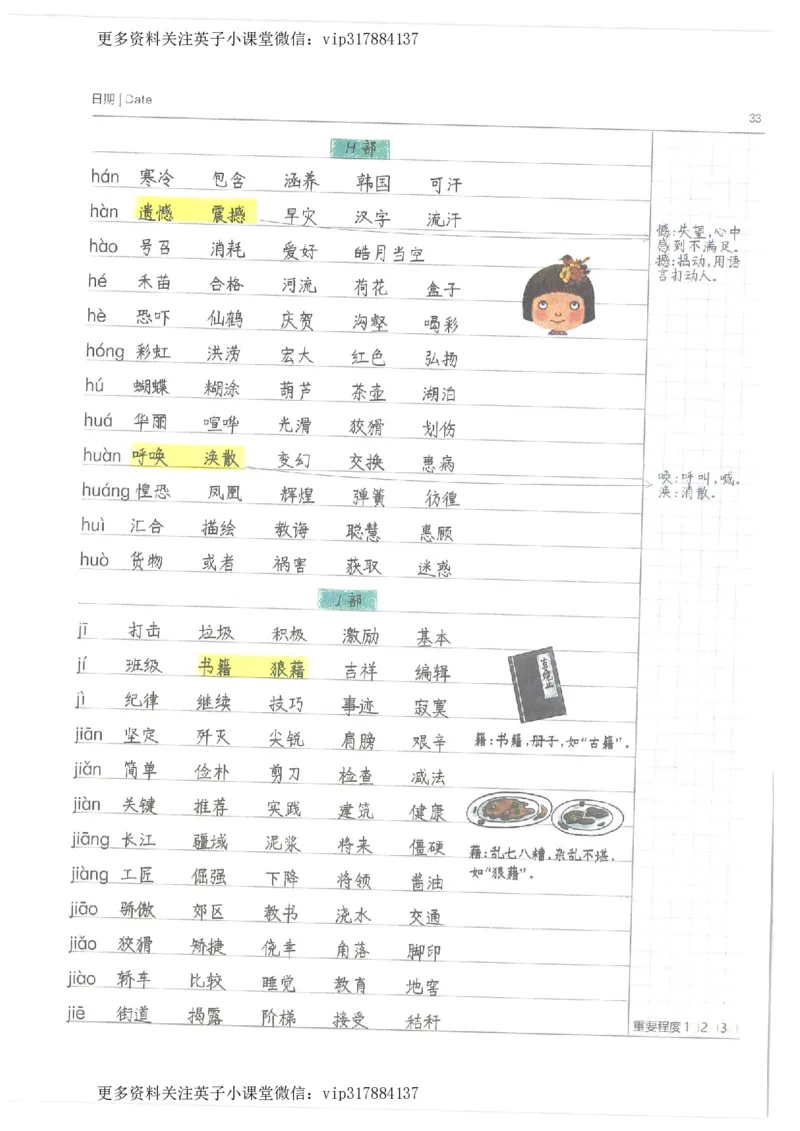 更多资料关注英子小课堂微信：vip317884137
日期 | Date
33
H部
hán 寒冷 包含 涵养 韩国 可汗
hàn 遗憾 震撼 旱灾 汉字 流汗
憾:失望,心中感到不满足。
撼:摇动,用语言打动人。
hào 号召 消耗 爱好 皓月当空
hé 禾苗 合格 河流 荷花 盒子
hè 恐吓 仙鹤 庆贺 沟壑 喝彩
hóng 彩虹 洪涝 宏大 红色 弘扬
hú 蝴蝶 糊涂 葫芦 茶壶 湖泊
huá 华丽 喧哗 光滑 狡猾 划伤
huàn 呼唤 涣散 变幻 交换 患病
唤:呼叫,喊。
涣:消散。
huáng 惶恐 凤凰 辉煌 弹簧 彷徨
huì 汇合 描绘 教诲 聪慧 惠顾
huò 货物 或者 祸害 获取 迷惑
J部
jī 打击 垃圾 积极 激励 基本
jí 班级 书籍 狼藉 吉祥 编辑
jì 纪律 继续 技巧 事迹 寂寞
jiān 坚定 歼灭 尖锐 肩膀 艰辛
籍:书籍,册子,如“古籍”。
jiǎn 简单 俭朴 剪刀 检查 减法
jiàn 关键 推荐 实践 建筑 健康
jiāng 长江 疆域 泥浆 将来 僵硬
藉:乱七八糟,杂乱不堪,
如“狼藉”。
jiàng 工匠 倔强 下降 将领 酱油
jiāo 骄傲 郊区 教书 浇水 交通
jiǎo 狡猾 矫捷 侥幸 角落 脚印
jiào 轿车 比较 睡觉 教育 地窖
jiē 街道 揭露 阶梯 接受 秸秆
重要程度 1 2 3
更多资料关注英子小课堂微信：vip317884137